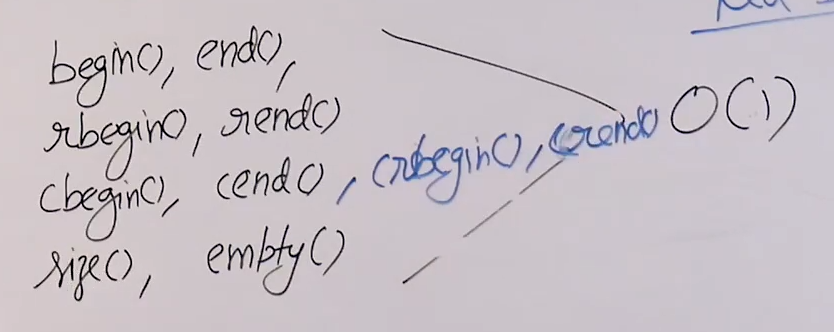 begin(), end(),
rbegin(), rend()
cbegin(), cend(), crbegin(), crend() O(1)
size(), empty()